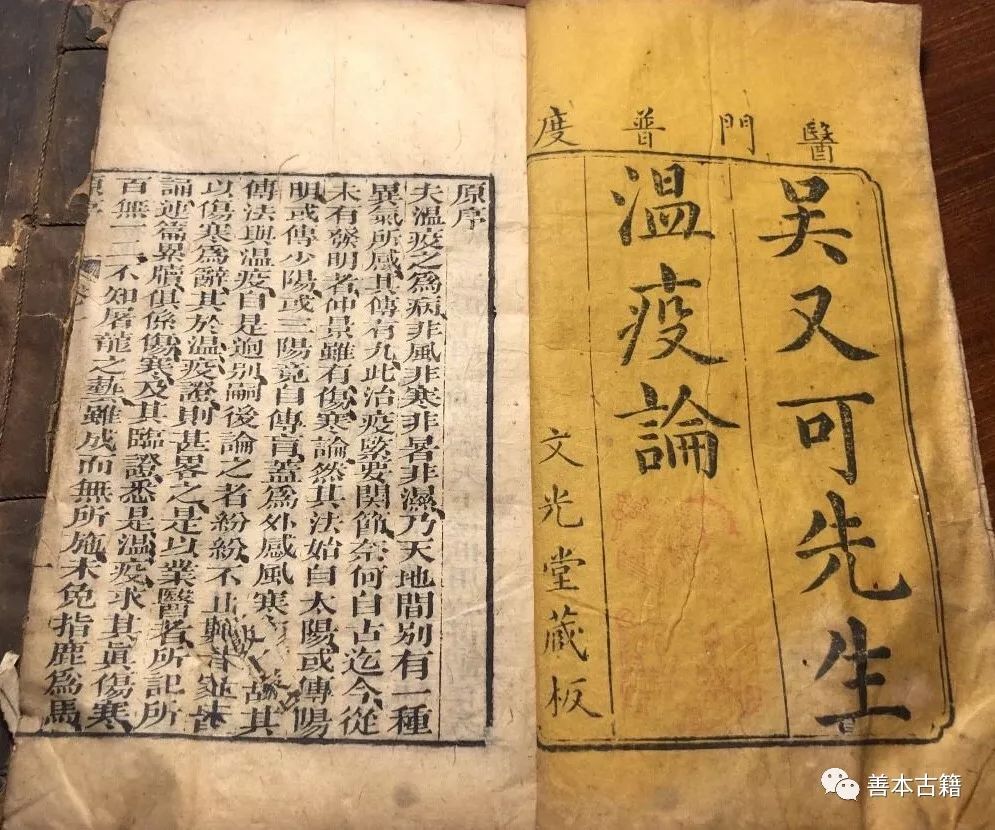 醫門普度
吳又可先生
溫疫論
文光堂藏板
原序
夫溫疫之爲病非風非寒非暑非濕乃天地間別有一種
異氣所感其傳有九此治疫緊要関節奈何自古迄今從
未有發明者仲景雖有傷寒論然其法始自太陽或傳陽
明或傳少陽或三陽竟自傳胃蓋爲外感風寒故其
傳法與溫疫自是迥別嗣後論之者紛紛不止皆
以傷寒爲辭其於溫疫證則甚畧之是以業醫者所記所
誦連篇累牘俱係傷寒及其臨證悉是溫疫求其眞傷寒
百無一二不知屠龍之藝雖成而無所施未免指鹿爲馬
善本古籍